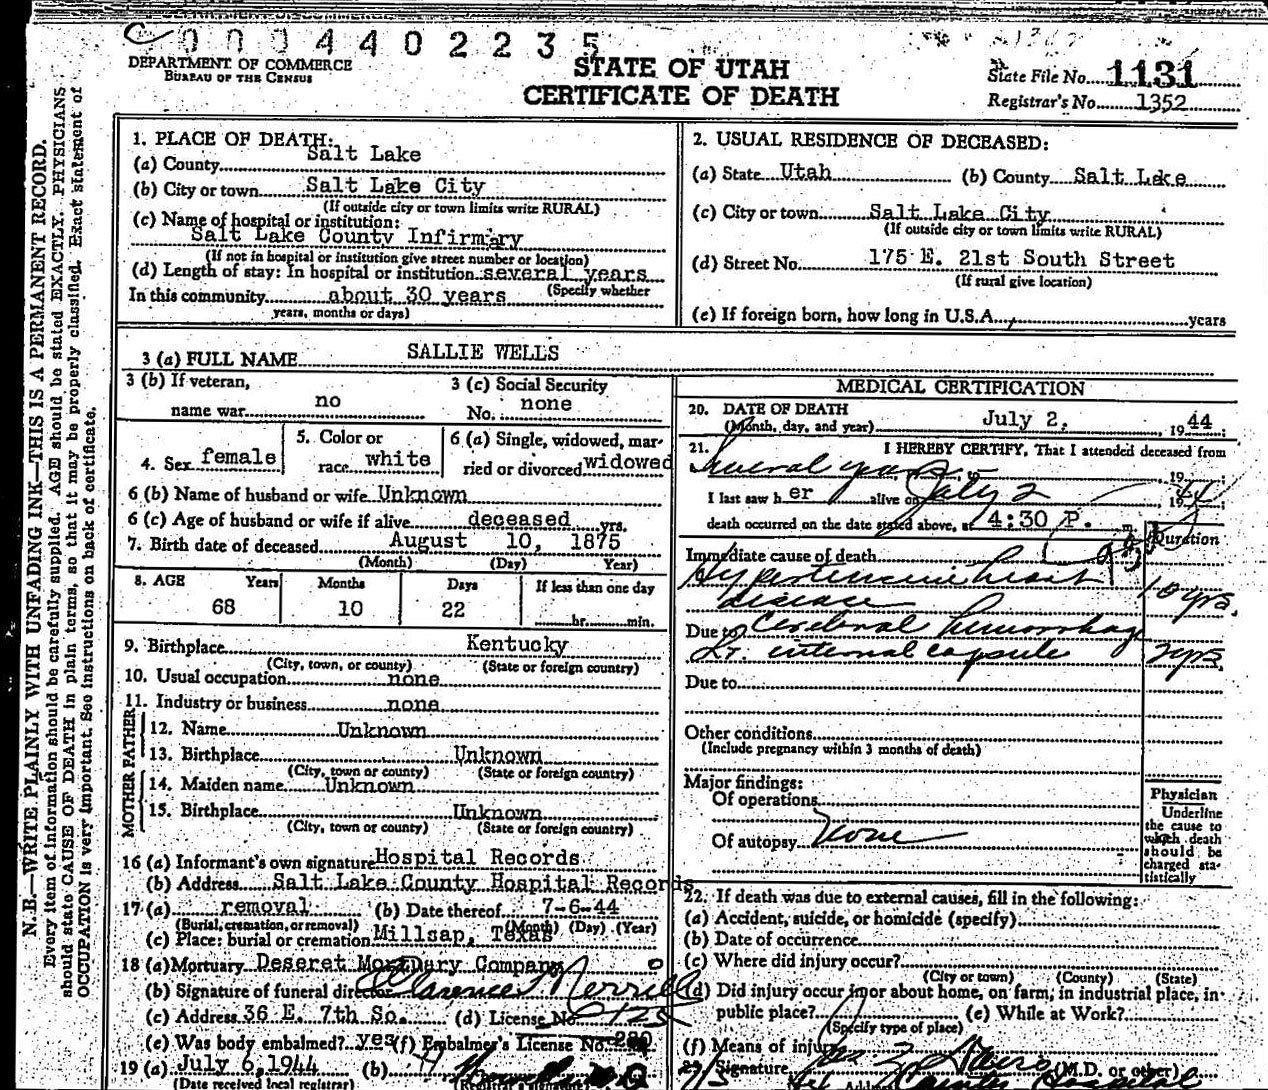 0004402235
DEPARTMENT OF COMMERCE
BUREAU OF THE CENSUS
STATE OF UTAH
CERTIFICATE OF DEATH
State File No. 1131
Registrar's No. 1352
N. B.—WRITE PLAINLY WITH UNFADING INK—THIS IS A PERMANENT RECORD.
Every item of information should be carefully supplied. AGE should be stated EXACTLY. PHYSICIANS
should state CAUSE OF DEATH in plain terms, so that it may be properly classified. Exact statement of
OCCUPATION is very important. See instructions on back of certificate.
1. PLACE OF DEATH:
(a) County Salt Lake
(b) City or town Salt Lake City
(If outside city or town limits write RURAL)
(c) Name of hospital or institution:
Salt Lake County Infirmary
(If not in hospital or institution give street number or location)
(d) Length of stay: In hospital or institution several years
In this community about 30 years (Specify whether
years, months or days)
2. USUAL RESIDENCE OF DECEASED:
(a) State Utah (b) County Salt Lake
(c) City or town Salt Lake City
(If outside city or town limits write RURAL)
(d) Street No. 175 E. 21st South Street
(If rural give location)
(e) If foreign born, how long in U.S.A. years
3 (a) FULL NAME SALLIE WELLS
3 (b) If veteran,
name war no
3 (c) Social Security
No. none
4. Sex female
5. Color or
race white
6 (a) Single, widowed, mar-
ried or divorced widowed
6 (b) Name of husband or wife Unknown
6 (c) Age of husband or wife if alive deceased yrs.
7. Birth date of deceased August 10, 1875
(Month) (Day) Year)
8. AGE Years Months Days If less than one day
68 10 22 hr. min.
9. Birthplace Kentucky
(City, town, or county) (State or foreign country)
10. Usual occupation none
11. Industry or business none
FATHER
12. Name Unknown
13. Birthplace Unknown
(City, town or county) (State or foreign country)
MOTHER
14. Maiden name Unknown
15. Birthplace Unknown
(City, town or county) (State or foreign country)
16 (a) Informant's own signature Hospital Records
(b) Address Salt Lake County Hospital Records
17 (a) removal (b) Date thereof 7-6-44
(Burial, cremation, or removal) (Month) (Day) (Year)
(c) Place: burial or cremation Millsap, Texas
18 (a) Mortuary Deseret Mortuary Company
(b) Signature of funeral director Clarence Merrill
(c) Address 36 E. 7th So. (d) License No. 2125
(e) Was body embalmed? yes (f) Embalmer's License No. 200
19 (a) July 6, 1944 (b)
(Date received local registrar)
MEDICAL CERTIFICATION
20. DATE OF DEATH
(Month, day, and year) July 2, 1944;
21. I HEREBY CERTIFY, That I attended deceased from
several years 19
I last saw her alive on July 2 1944
death occurred on the date stated above, at 4:30 P. m.
Duration
Immediate cause of death
Hypertensive heart
disease 10 yrs.
Due to Cerebral hemorrhage
Lt. internal capsule 2 yrs
Due to
Other conditions
(Include pregnancy within 3 months of death)
Major findings:
Of operations
Of autopsy None
Physician
Underline
the cause to
which death
should be
charged sta-
tistically
22. If death was due to external causes, fill in the following:
(a) Accident, suicide, or homicide (specify)
(b) Date of occurrence
(c) Where did injury occur?
(City or town) (County) (State)
(d) Did injury occur in or about home, on farm, in industrial place, in
public place? (e) While at Work?
(Specify type of place)
(f) Means of injury
23. Signature (M.D. or other)